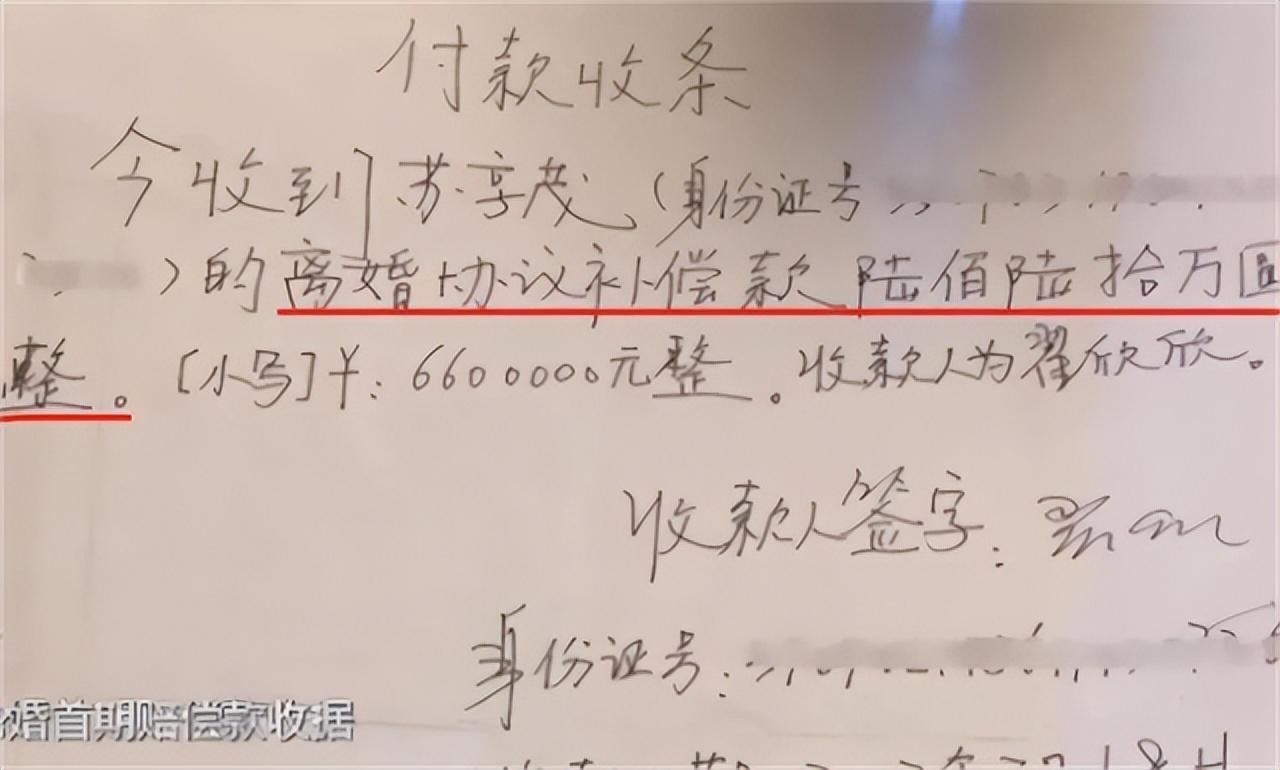 付款收条
今收到苏享茂(身份证号
)的离婚协议补偿款陆佰陆拾万圆
整。[小写]￥:6600000元整。收款人为翟欣欣。
收款人签字:
身份证号:
婚首期赔偿款收据